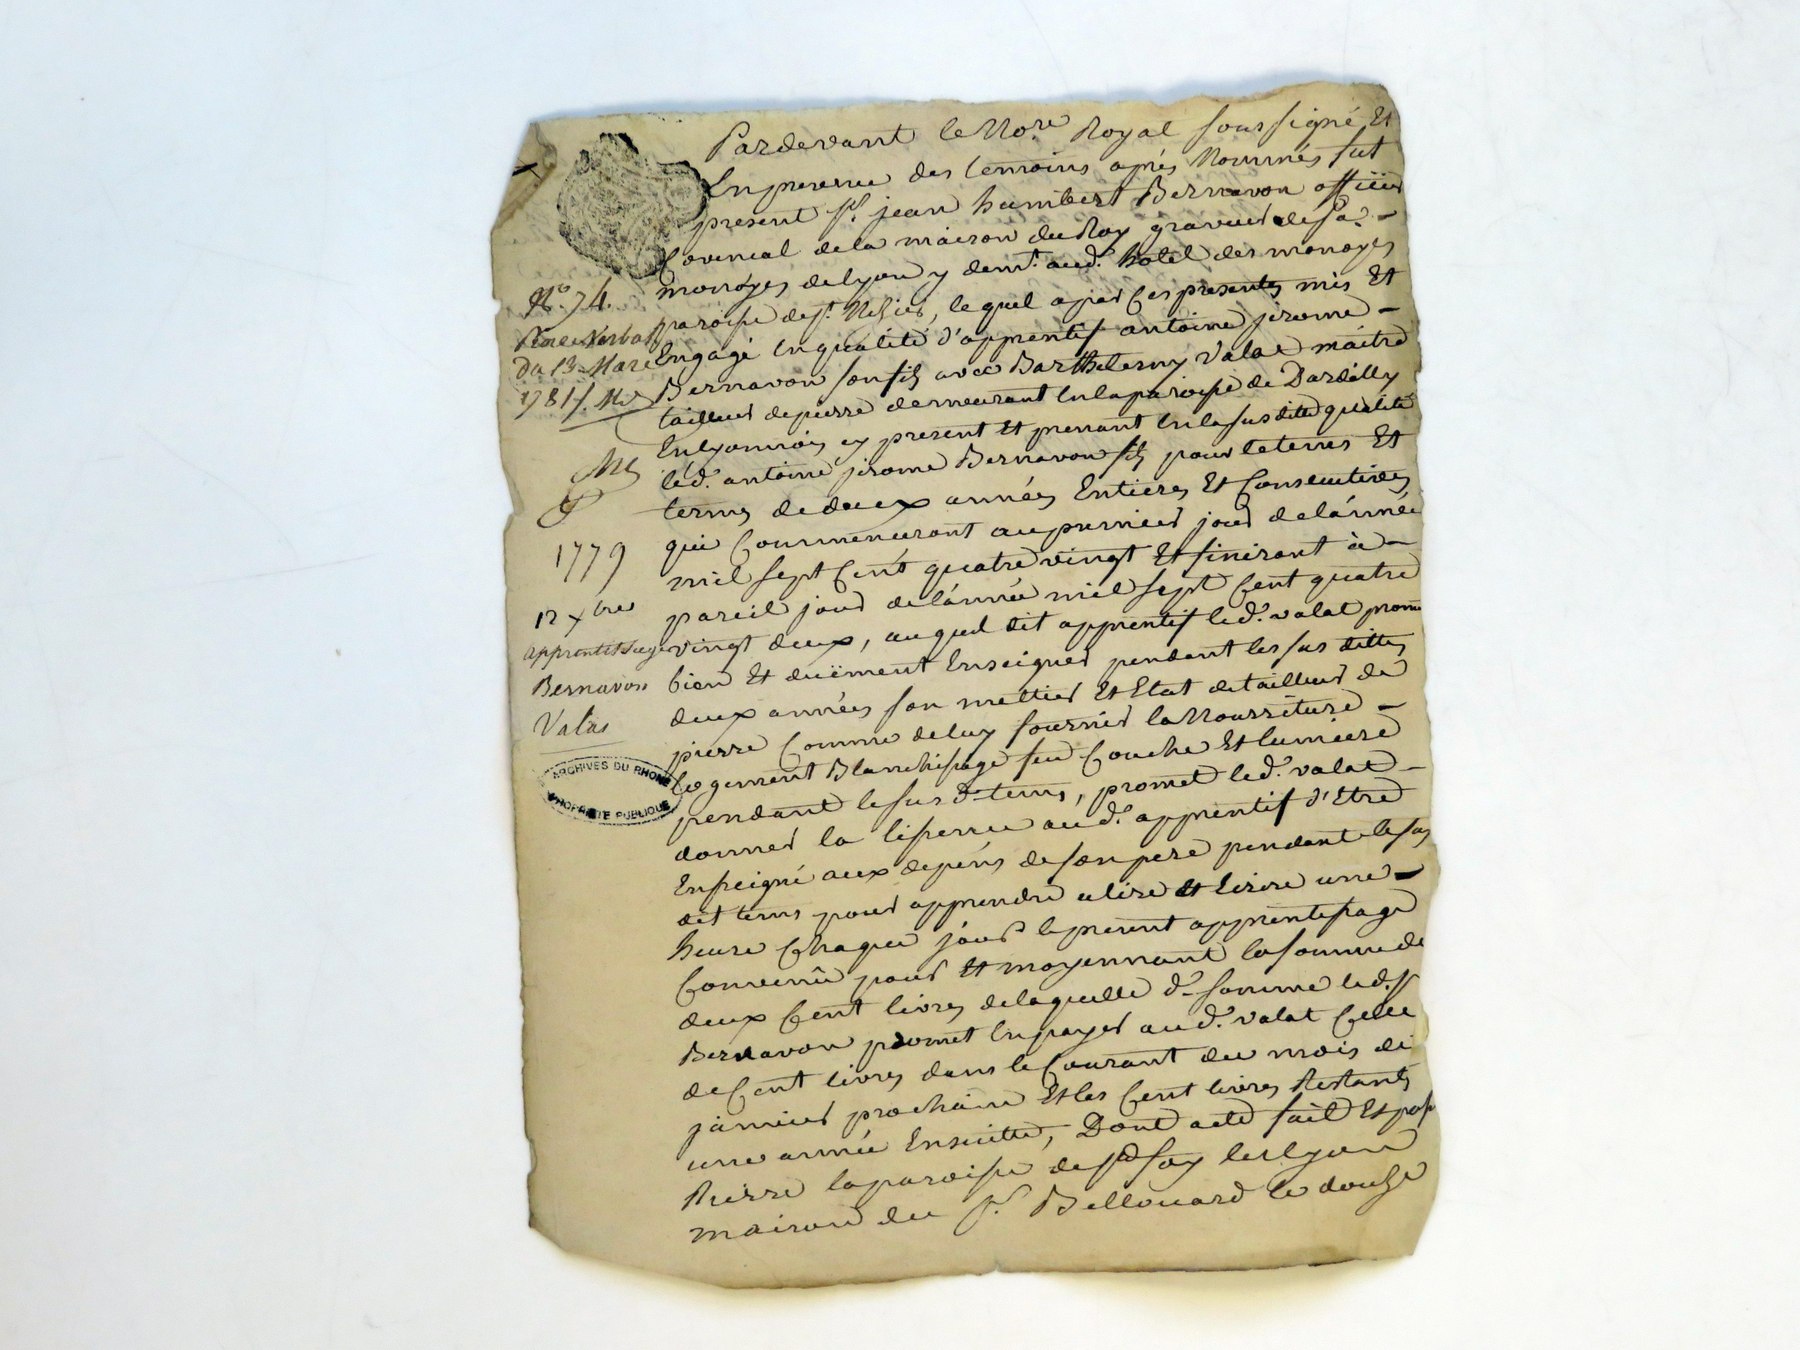 Pardevant le No.re Royal soussigné Et
En presence des temoins après Nommés fut
present Sr. jean humbert Bernavon officier
Comensal de la maison du Roy graveur de la
monoyes de lyon y demt. aud. hotel des monoyes
paroisse de St. Nisier, le quel a par Ces presentes mis Et
Engagé En qualité d'apprentif antoine jerome -
Bernavon son fils avec Barthelemy Valat maître
tailleur de pierre demeurant En la paroisse de Dardilly
En lyonnois cy present Et prenant En la susditte qualité
led. antoine jerome Bernavon fils pour le tems Et
terme de deux années Entieres Et Consecutives
qui Commenceront au premier jour de l'année
mil sept Cent quatre vingt Et finiront à -
pareil jour de l'année mil sept Cent quatre
vingt deux, auquel dit apprentif led. valat promet
bien Et duëment Enseigner pendant les sus dittes
deux années son mettier Et Etat de tailleur de
pierre Comme de luy fournir la Nourriture -
logement Blanchissage feu Couche Et lumiere
pendant le sus d. tems, promet led. valat -
donner la lissence aud. apprentif d'Etre
Enseigné aux depens de son pere pendant le sus
dit tems pour apprendre a lire Et Ecrire une -
heure Chaque jour le present apprentissage
Convenû pour Et moyennant la somme de
deux Cent livres de laquelle d. somme led. Sr
Bernavon promet En payer aud. valat Celle
de Cent livres dans le Courant du mois de
janvier prochain Et les Cent livres Restants
une année Ensuitte, Dont acte fait Et passé
Riere la paroisse de Ste foy les lyon
maison du Sr. Bellouard le douze
No. 74.
du 13 Mars
1781. Mes
1779
12 xbre
apprentissage
Bernavon
Valas
ARCHIVES DU RHONE
PROPRIETE PUBLIQUE